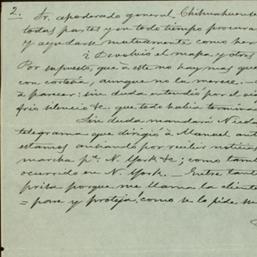 2. Sr. apoderado general, Chihuahua
todas partes y en todo tiempo procura
y ayudarse mutuamente como her
¿ Devolvió el mapa y otros
Por supuesto, que à este no hay mas que
con cortesía, aunque no la merece,
à parecer: sin duda entendió por el
frio silencio &c. que todo habia termina
Sin duda mandará Nicola
telegrama que dirigió à Manuel
estamos ansiando por recibir noticias
marcha pa. N. York &c; como tam
ocurrido en N. York. — Entre tant
prisa porque me llama la cliente
pone y proteja! como se lo pide su